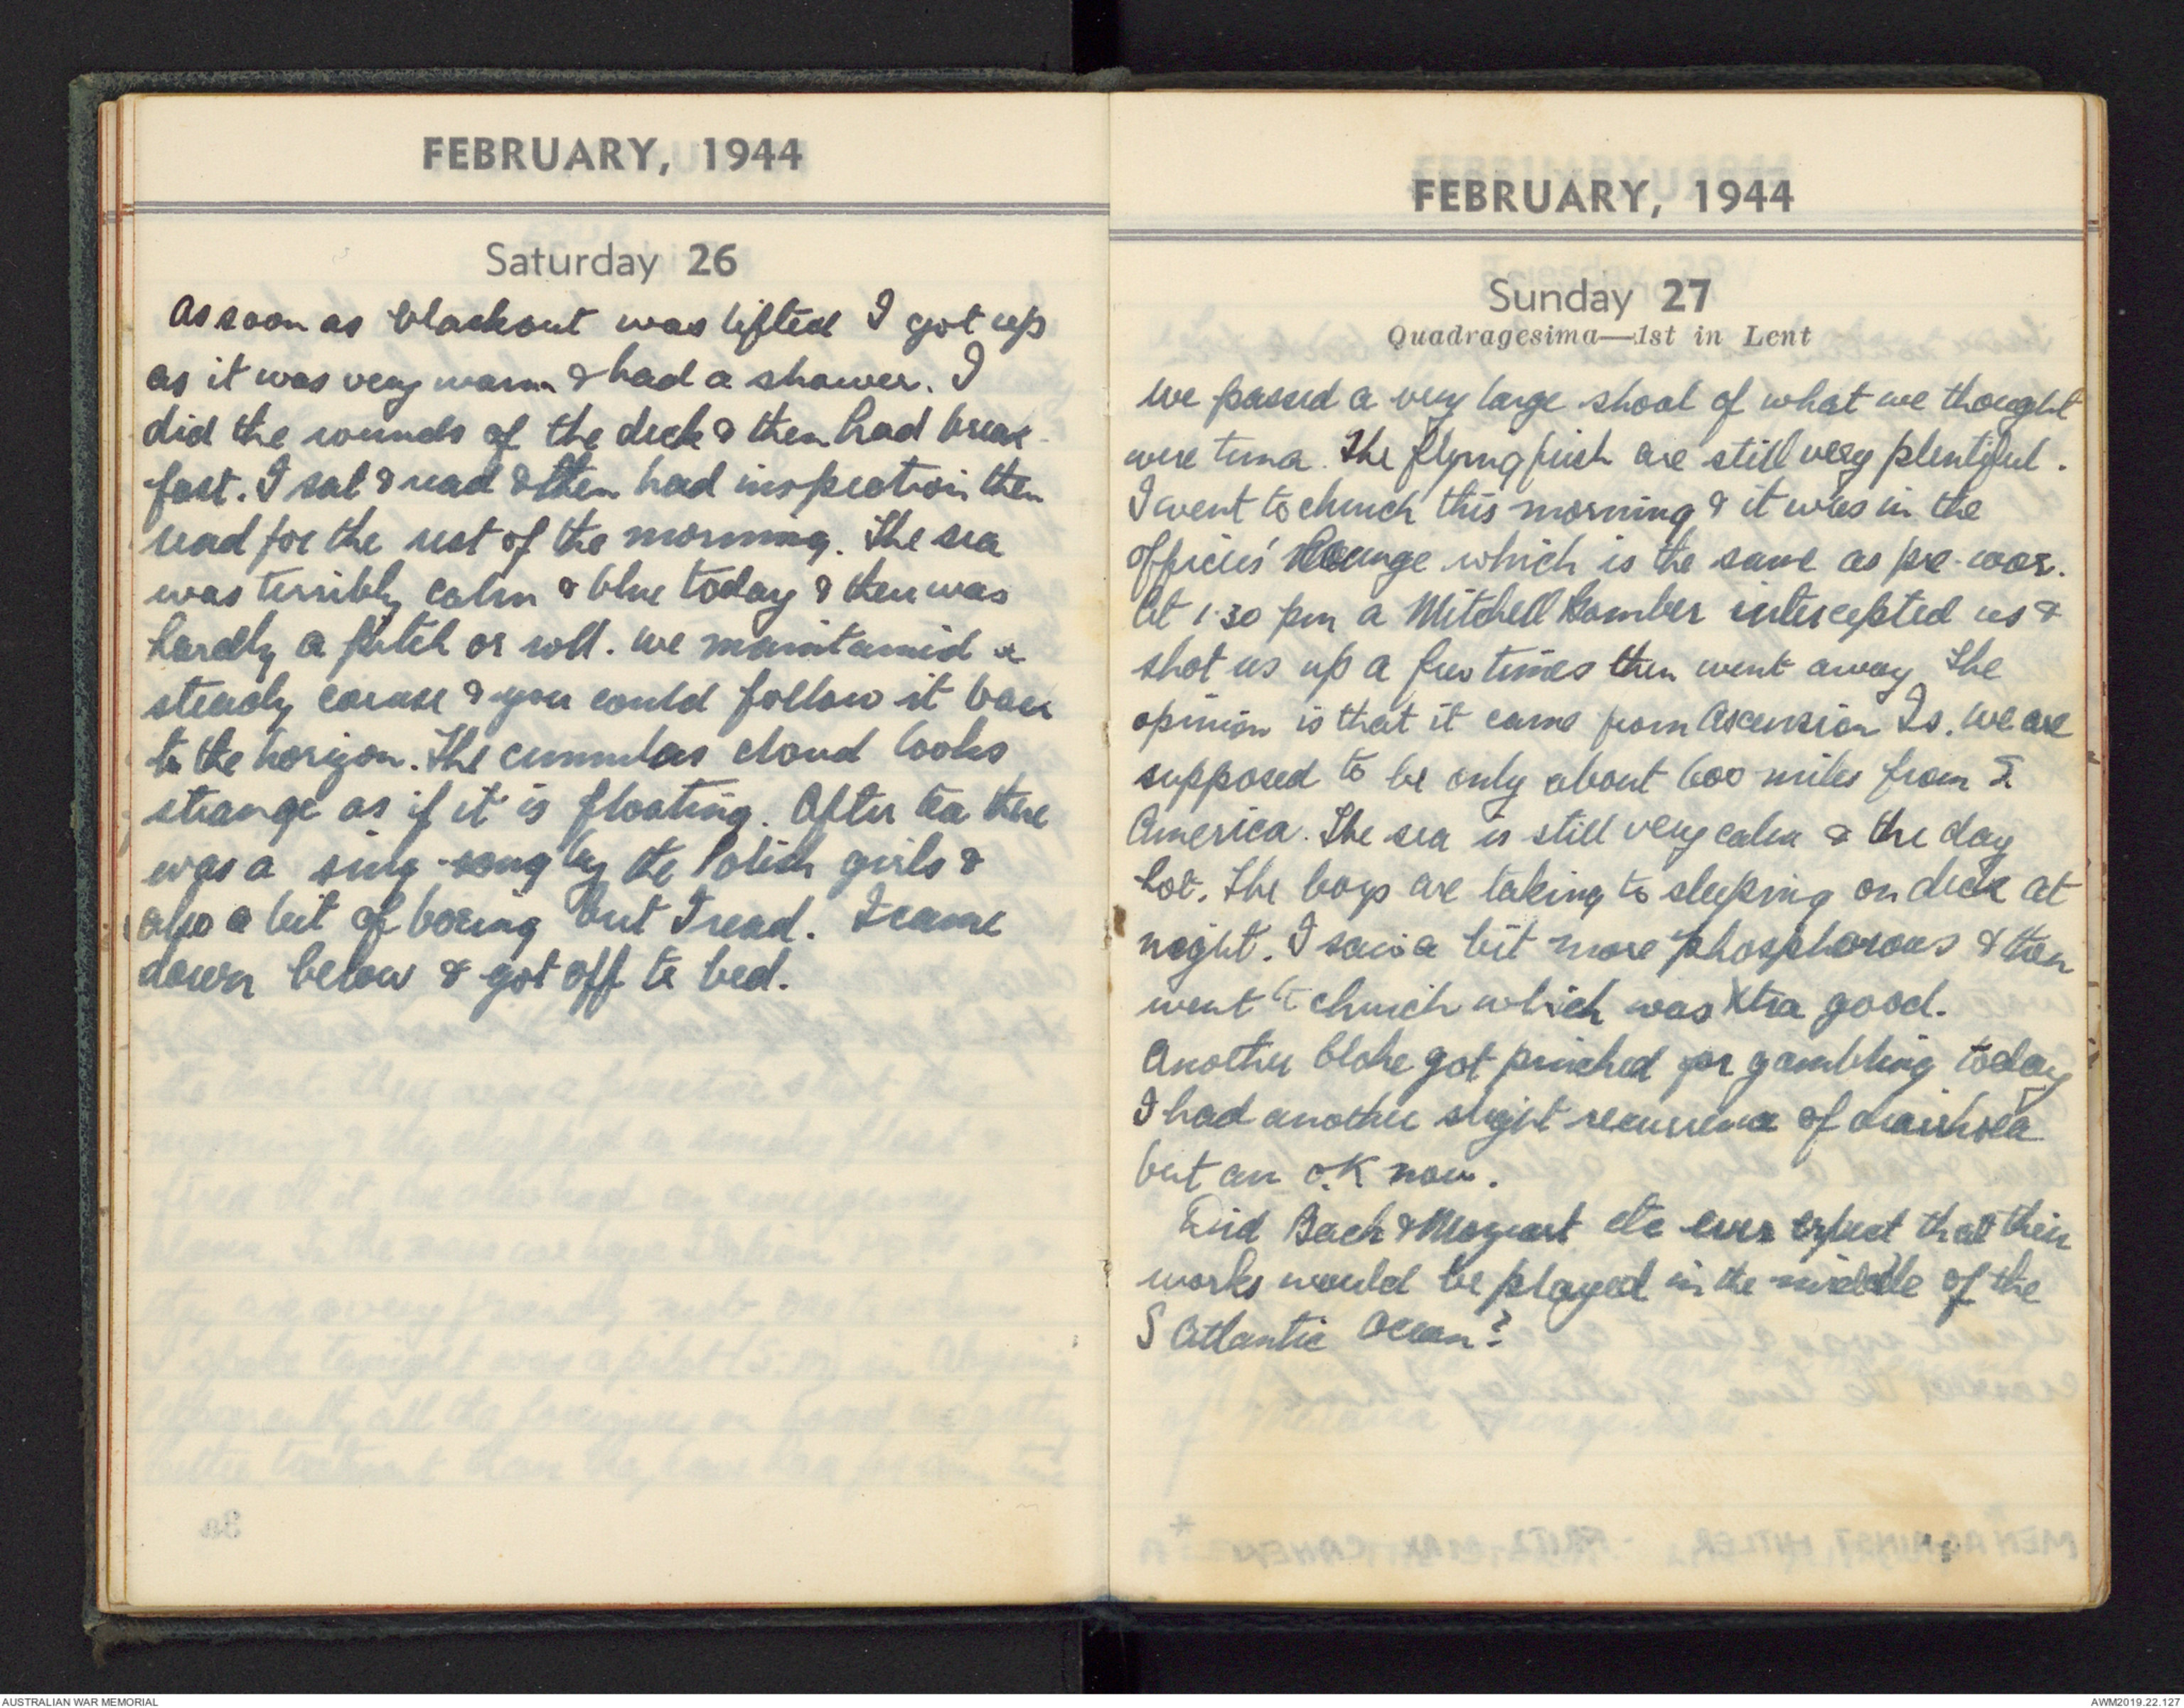 FEBRUARY, 1944
Saturday 26
As soon as blackout was lifted I got up
as it was very warm & had a shower. I
did the rounds of the deck & then had break-
fast. I sat & read & then had inspection then
read for the rest of the morning. The sea
was terribly calm & blue today & there was
hardly a pitch or roll. We maintained a
steady course & you could follow it back
to the horizon. The cumulus cloud looks
strange as if it is floating. After tea there
was a sing-song by the Polish girls &
also a bit of boxing but I read. I came
down below & got off to bed.
FEBRUARY, 1944
Sunday 27
Quadragesima—1st in Lent
We passed a very large shoal of what we thought
were tuna. The flying fish are still very plentiful.
I went to church this morning & it was in the
officers' lounge which is the same as pre-war.
At 1.30 pm a Mitchell Bomber intercepted us &
shot us up a few times then went away. The
opinion is that it came from Ascension Is. We are
supposed to be only about 600 miles from S
America. The sea is still very calm & the day
hot. The boys are taking to sleeping on deck at
night. I saw a bit more phosphorous & then
went to church which was Xtra good.
Another bloke got pinched for gambling today
I had another slight recurrence of diarrhoea
but am O.K now.
Did Bach & Mozart etc ever expect that their
works would be played in the middle of the
S Atlantic Ocean?
MEN AGAINST HITLER - FRITZ MAX CAHEN
AUSTRALIAN WAR MEMORIAL
AWM2019.22.127